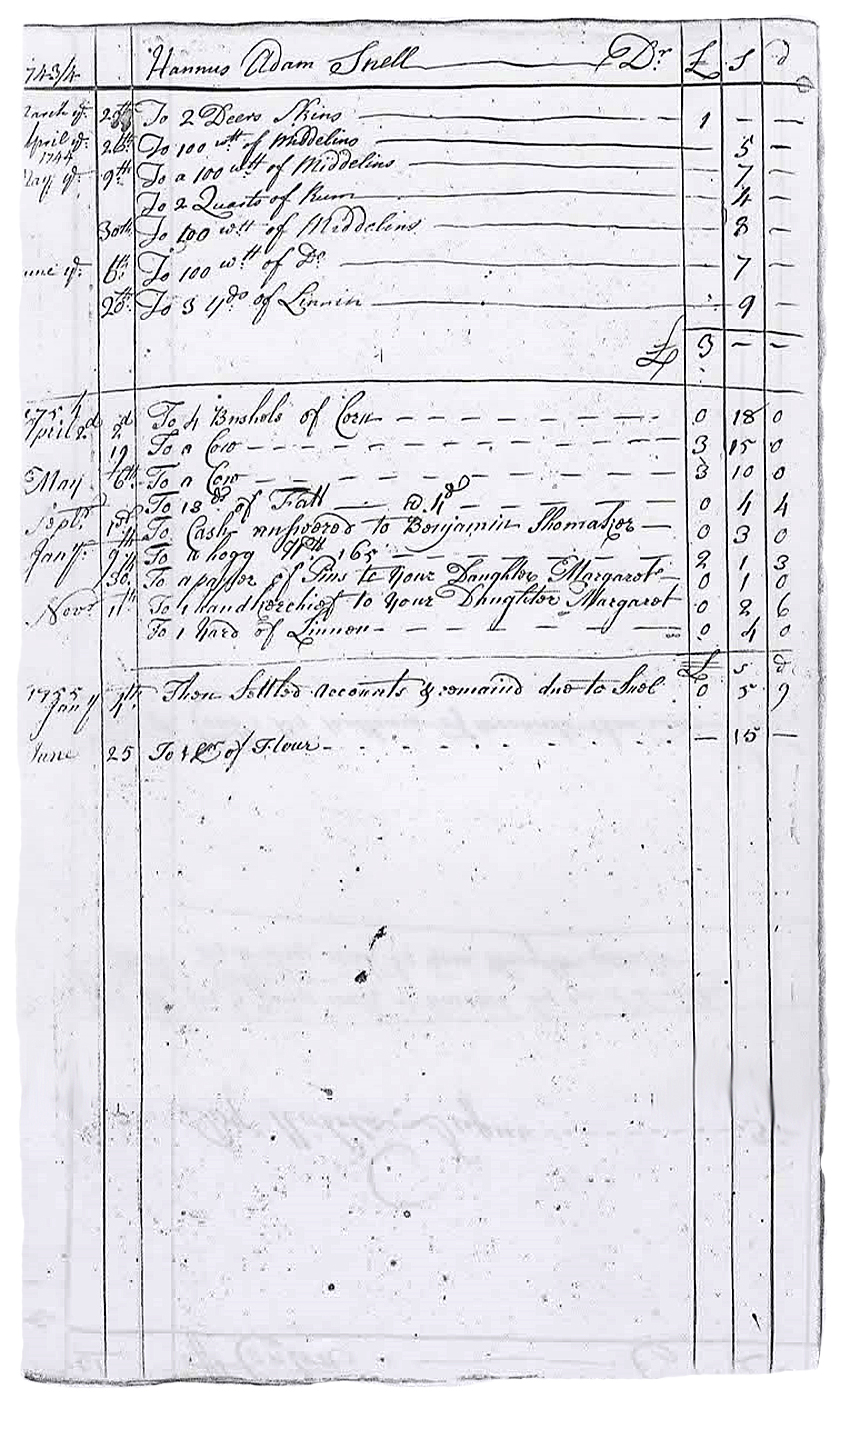 743/4 Hannus Adam Snell Dr £ s d
March ye 20th To 2 Deers Skins 1 — —
April ye 26th To 100 wtt of Middelins 5 —
1744
May ye 9th To a 100 wtt of Middelins 7 —
To 2 Quarts of Rum 4 —
30th To 100 wtt of Middelins 8 —
une ye 6th To 100 wtt of Do 7 —
20th To 3 yds of Linnin 9 —
£ 3 — —
1754
April 2d 2d To 4 Bushels of Corn 0 18 0
19 To a Cow 3 15 0
May 6th To a Cow 3 10 0
To 13 of Fatt a 4d 0 4 4
Septr 1st To Cash answered to Benjamin Shomaker 0 3 0
Jany 9th To a hogg Wtt 165 2 1 3
30 To a paper of Pins to your Daughter Margaret 0 1 0
Novr 11th To 1 handkerchief to your Daughter Margaret 0 2 6
To 1 Yard of Linnen 0 4 0
£ s d
1755
Jany 4th Then Settled accounts & remaind due to Snel 0 5 9
June 25 To 1 of Flour — 15 —